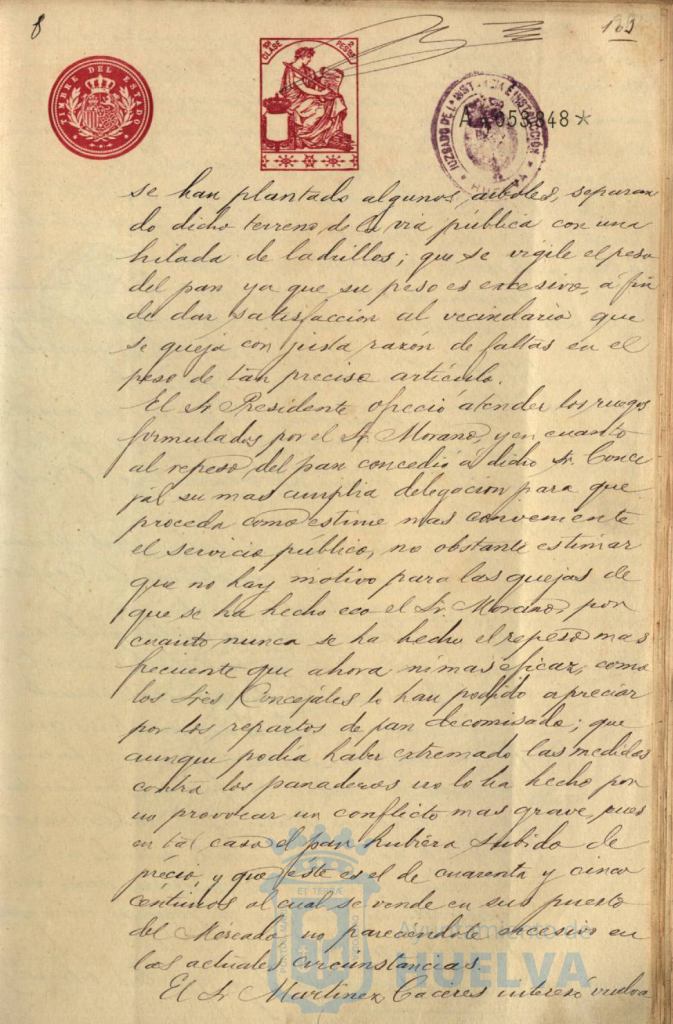 8
139
TIMBRE DEL ESTADO
CLASE
PESETAS
JUZGADO DE 1ª INSTANCIA E INSTRUCCIÓN
HUELVA
A 4.053.848 *
se han plantado algunos árboles, separan
do dicho terreno, de la via pública con una
hilada de ladrillos; que se vigile el peso
del pan ya que su peso es excesivo, á fin
de dar satisfaccion al vecindario que
se queja con justa razón de faltas en el
peso de tan preciso artículo.
El Sr Presidente ofreció atender los ruegos
formulados por el Sr. Morano, y en cuanto
al repeso, del pan concedió á dicho Sr. Conce
jal su mas amplia delegacion para que
proceda como estime mas conveniente
el servicio público, no obstante estimar
que no hay motivo para las quejas de
que se ha hecho eco el Sr. Morano, por
cuanto nunca se ha hecho el repeso mas
frecuente que ahora ni mas eficaz, como
los Sres Concejales lo han podido apreciar
por los repartos de pan decomisado; que
aunque podia haber extremado las medidas
contra los panaderos no lo ha hecho por
no provocar un conflicto mas grave, pues
en tal caso el pan hubiera subido de
précio, y que éste es el de cuarenta y cinco
céntimos al cual se vende en su puesto
del Mercado no pareciéndole excesivo en
las actuales circunstancias.
El Sr Martinez Caceres interesó vuelva
Ayuntamiento de
HUELVA